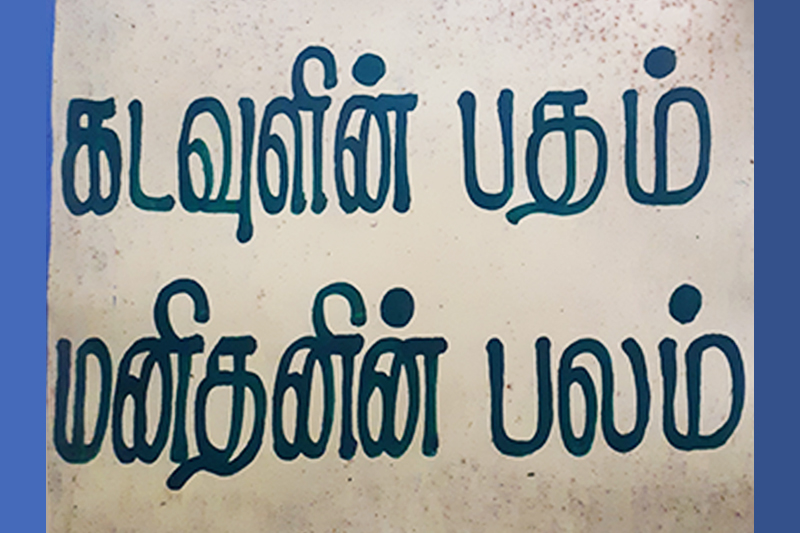 கடவுளின் பதம்
மனிதனின் பலம்